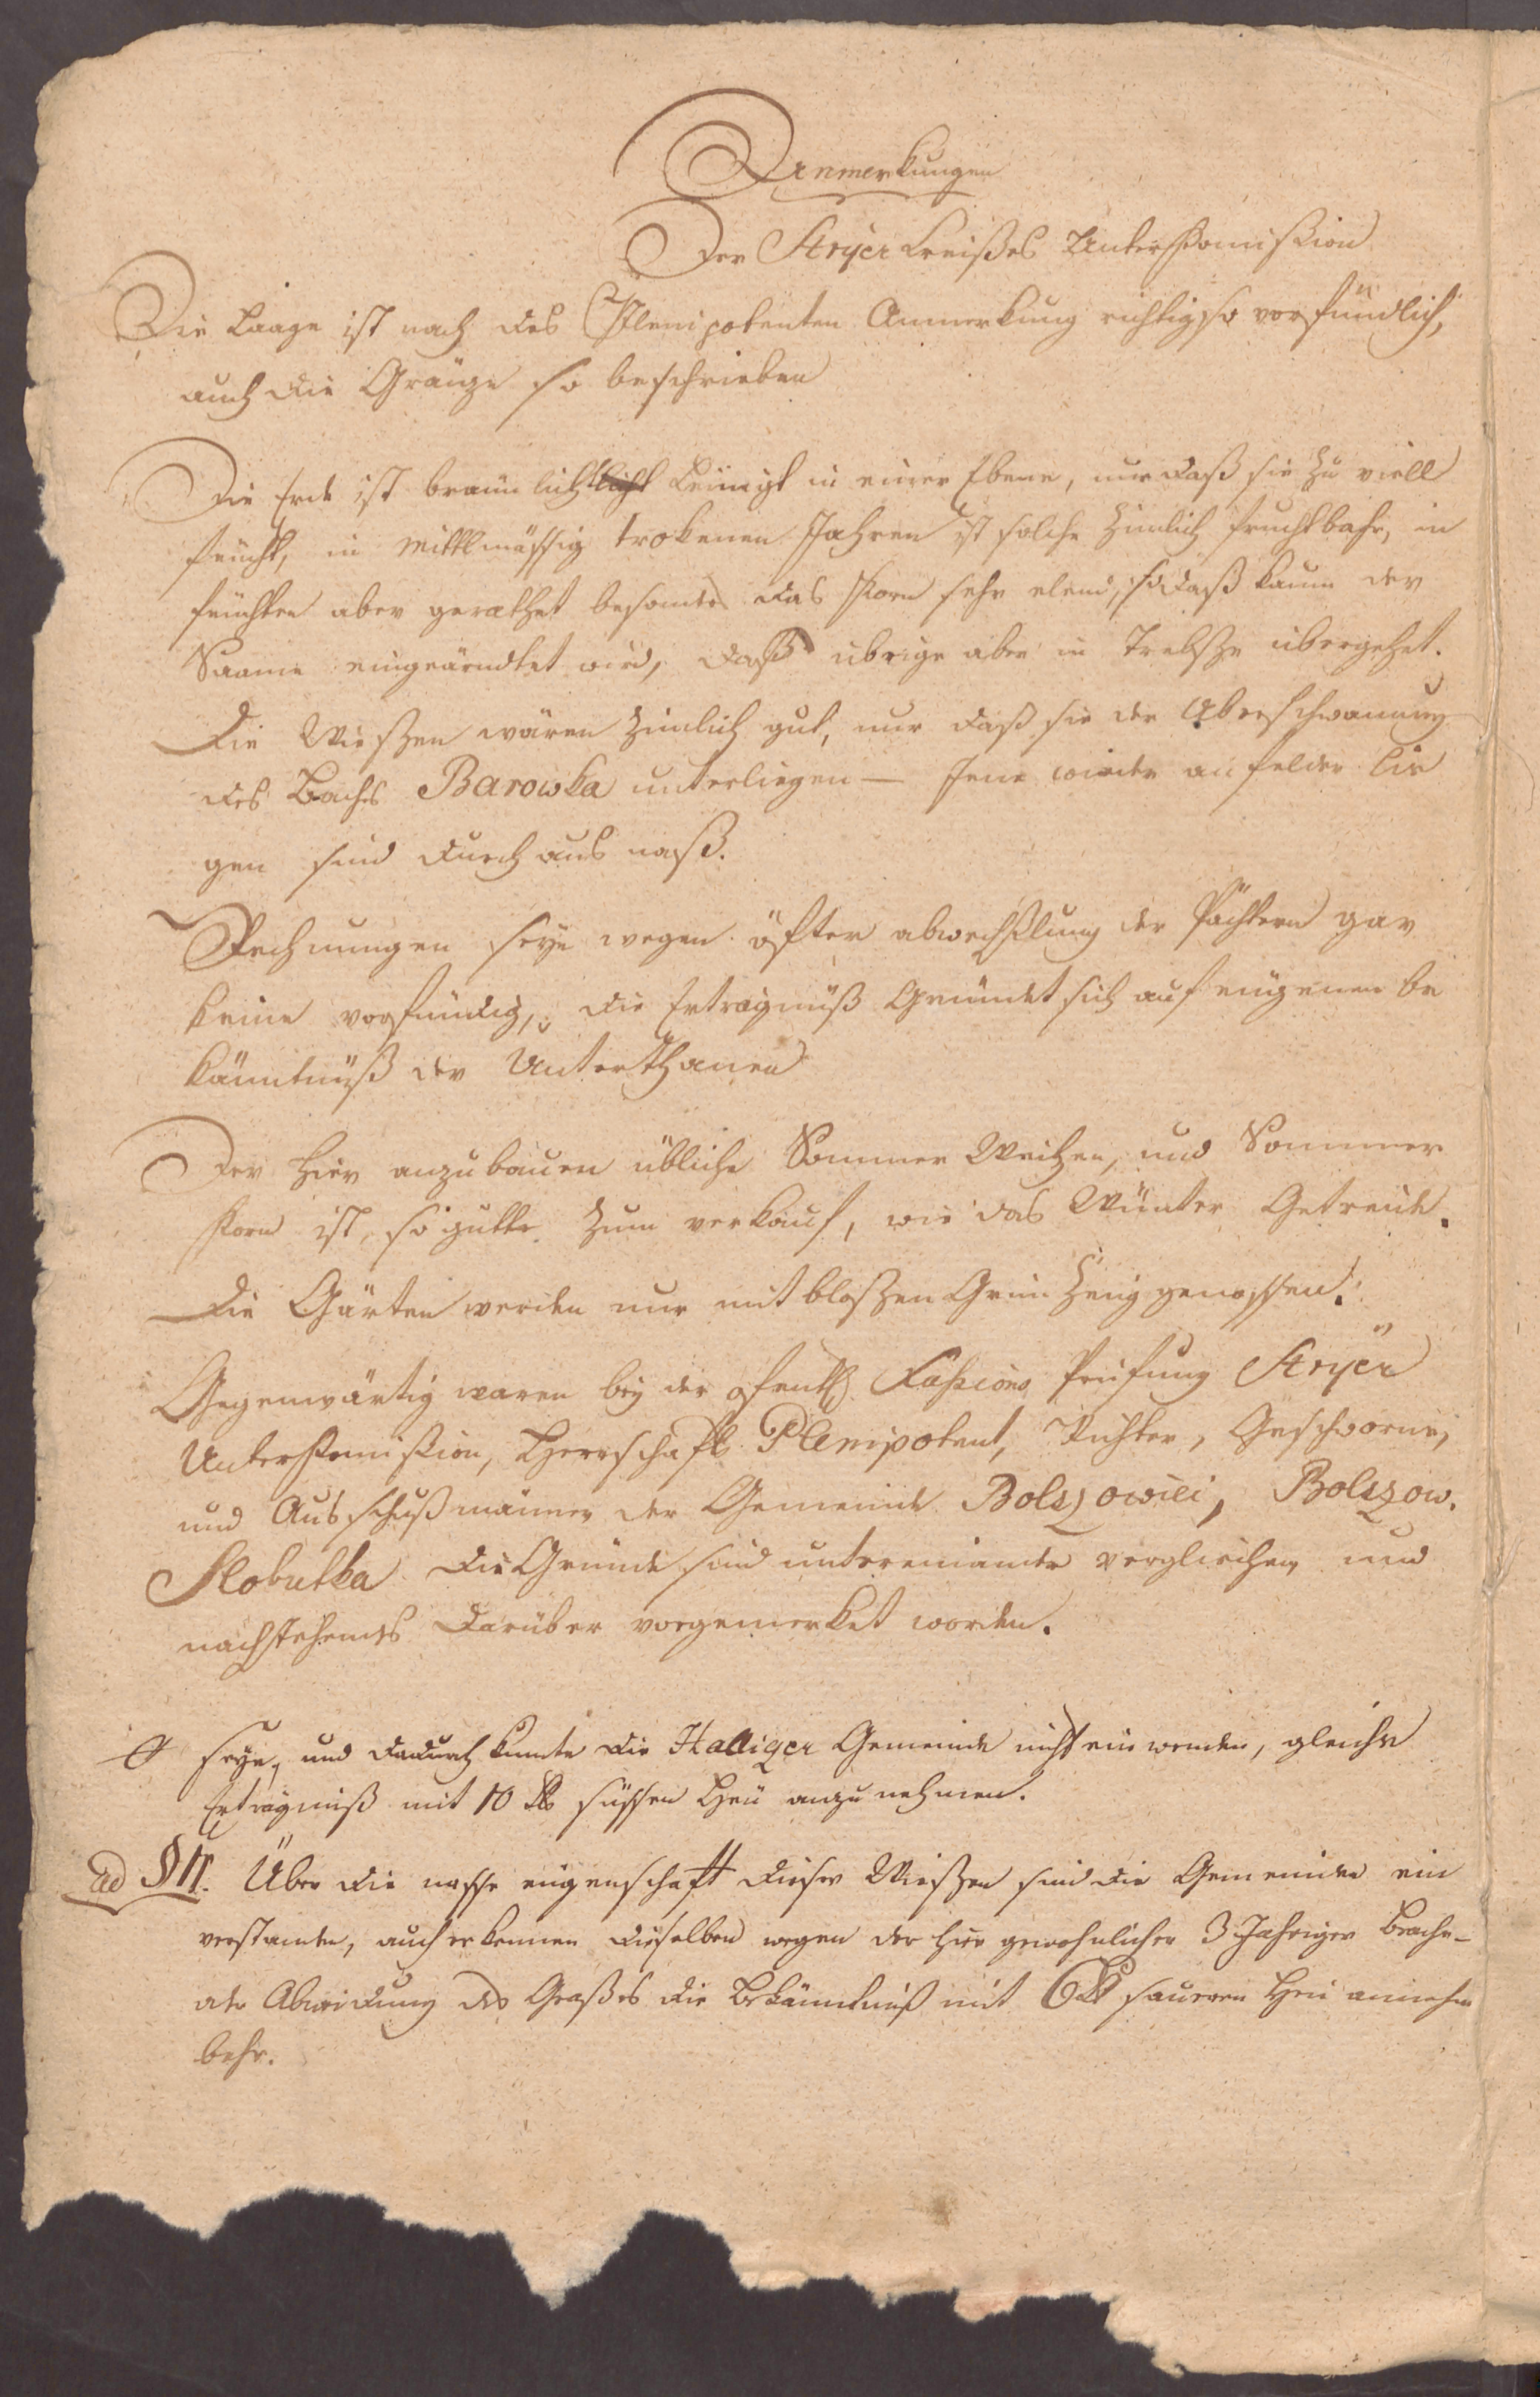 Anmerkungen
Der Stryer Kreißes Unterkomißion
Die Laage ist nach des Plenipotenten Anmerkung richtig so vorfündlich,
auch die Gränze so beschrieben
Die Erde ist braunlicht leimigt in einer Ebene, nur daß sie zu viell
feücht, in mittlmässig trokenen Jahren ist solche zimlich fruchtbahr, in
feüchten aber gerathet besonders das Korn sehr elend, so daß kaum der
Saame eingeärndtet wird, daß übrige aber in Trebsze übergehet.
Die Wieszen wären zimlich gut, nur daß sie der Überschwämung
des Bachs Barowka unterliegen — Jene wieder an felder lie
gen sind durchaus naß.
Rechnungen seye wegen öfter abwechßlung der Pächtern gar
keine vorfindig, die Erträgnüß Gründet sich auf eügenen be
känntnüß der Unterthanen
Der hier anzubauen übliche Sommer Weitzen, und Sommer
Korn ist, so gutte zum verkauf, wie das Wünter Getreide.
Die Gärten werden nur mit bloszen Grün Zeüg genossen.
Gegenwärtig waren bey der Faßions Prüfung Stryer
Unterkomißion, Herrschaft Plenipotent, Richter, Geschworne,
und Ausschußmänner der Gemeinde Bolszowiei, Bolszow.
Slobutka Die Gründe sind untereinander verglichen, und
nachstehends darüber vorgemerket worden.
seye, und dadurch kunte die Haliger Gemeinde nicht einwenden, gleiche
Erträgniß mit 10 süssen Heü anzunehmen.
ad § 11. Über die nasse eügenschaft dieser Wieszen sind die Gemeinden ein
verstanden, auch erkennen dieselben wegen der hier gewohnlicher 3 Jahriger Brache-
oder Abweidung des Graßes die Bekänntniß mit 6 saueren Heü annehm
behr.